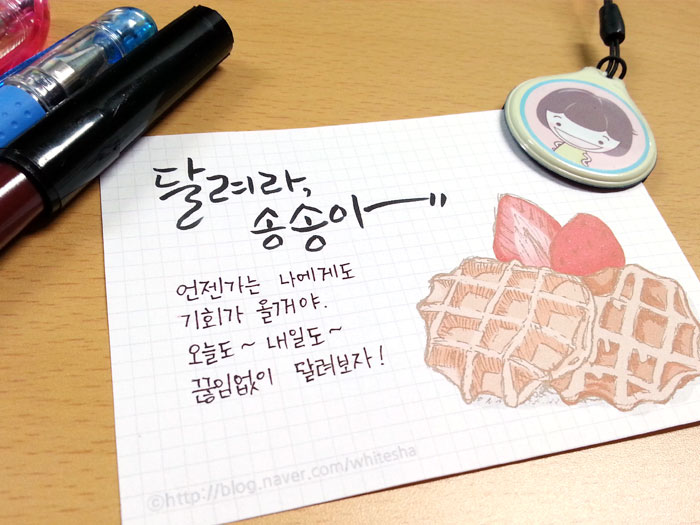 달려라,
송송이~"
언젠가는 나에게도
기회가 올거야.
오늘도~ 내일도~
끊임없이 달려보자!
©http://blog.naver.com/whitesha